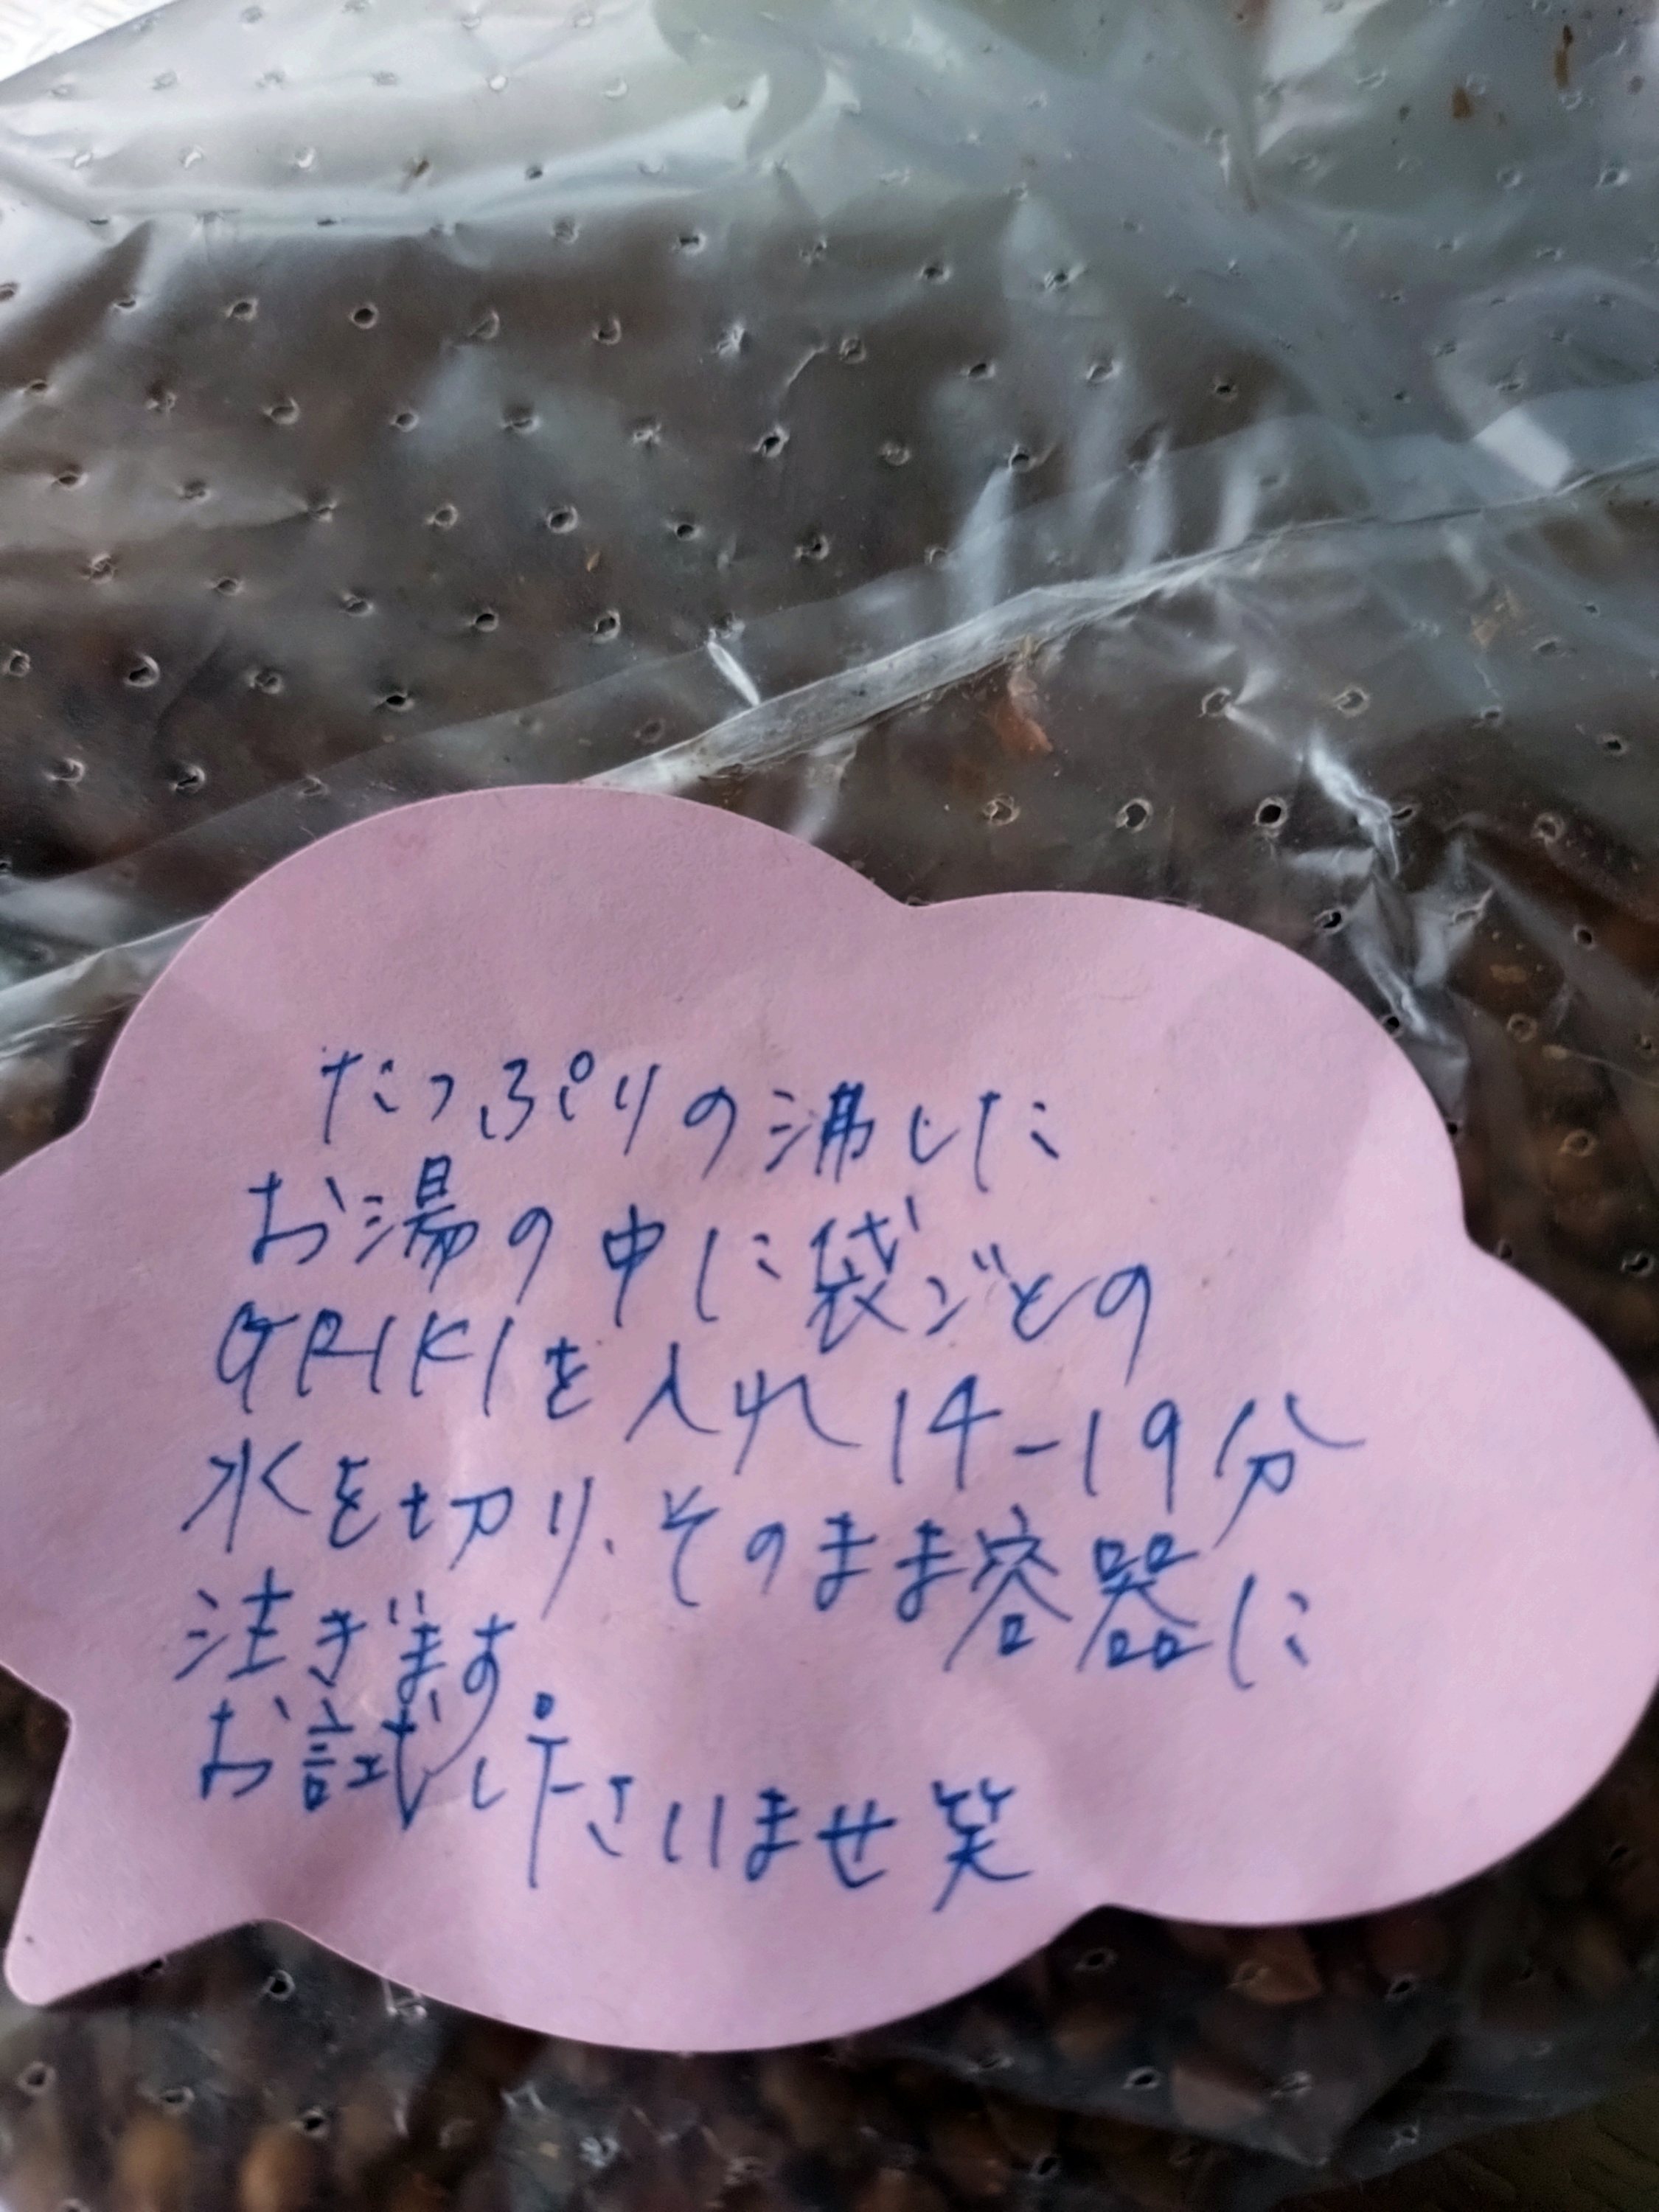 たっぷりの沸した
お湯の中に袋ごとの
GRIKIを入れ14-19分
水を切り、そのまま容器に
注ぎます。
お試し下さいませ笑